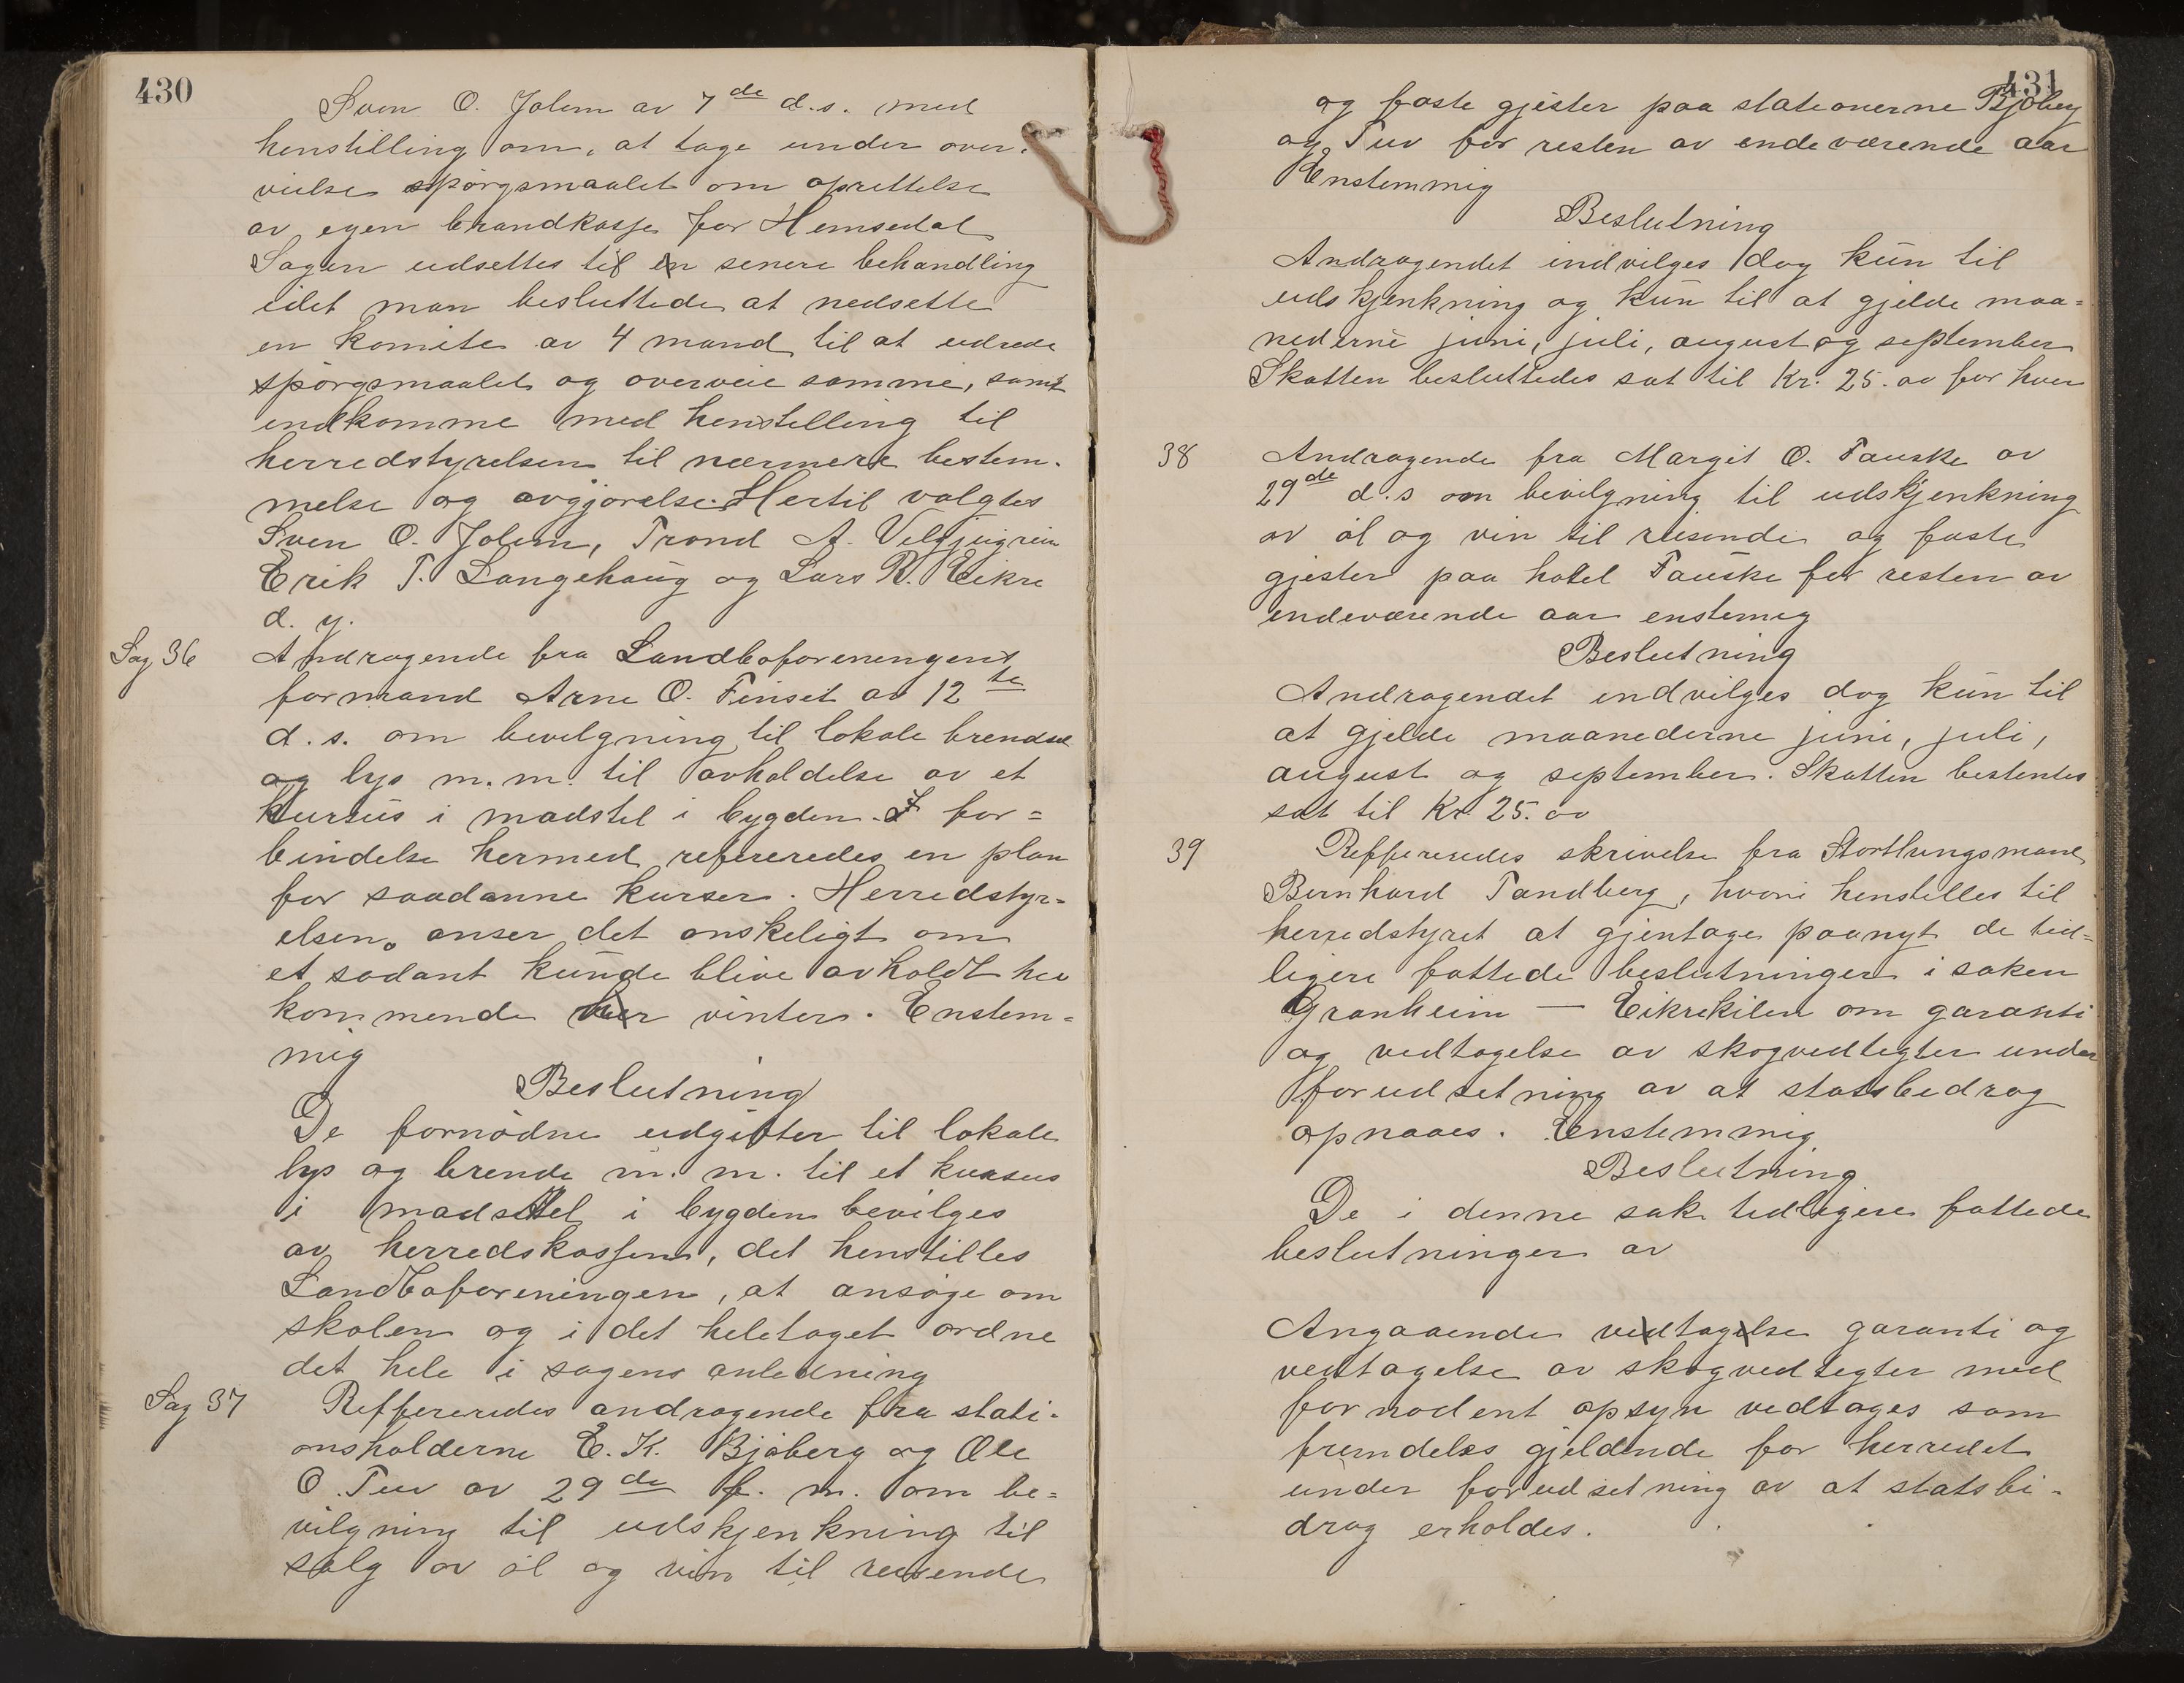 430
Sven O. Jolem av 7de d.s. med
henstilling om, at tage under over-
vielse spörgsmaalet om oprettelse
av egen brandkasse for Hemsedal
Sagen udsettes til en senere behandling
idet man besluttede at nedsette
en komite av 4 mand til at udrede
spörgsmaalet og overveie samme, samt
indkomme med henstilling til
herredstyrelsen til nærmere bestem-
melse og avgjørelse. Hertil valgtes
Sven O. Jolem, Trond A. Veltjugrein
Erik T. Langehaug og Lars R. Eikre
d. y.
Sag 36 Andragende fra Landboforeningens
formand Arne O. Finset av 12te
d.s. om bevilgning til lokale brendsel
og lys m.m. til avholdelse av et
kursus i madstel i bygden. I for=
bindelse hermed refereredes en plan
for saadanne kurser. Herredstyr-
elsen anser det onskeligt om
et sodant kunde blive avholdt her
kommende her vinter. Enstem=
mig
Beslutning
De fornødne udgifter til lokale
lys og brende m. m. til et kursus
i madstel i bygden bevilges
av herredskassen, det henstilles
Landboforeningen, at ansøge om
skolen og i det heletaget ordne
det hele i sagens anledning
Sag 37 Reffereredes andragende fra stati-
onsholderne E. K. Bjøberg og Ole
O. Tuv av 29de f. m. om be=
vilgning til udskjenkning til
salg av øl og vin til reisende
431
og faste gjester paa stationerne Bjøberg
og Tuv for resten av indeværende aar
Enstemmig
Beslutning
Andragendet indvilges dog kun til
udskjenkning og kun til at gjelde maa=
nederne juni, juli, august og september
Skatten besluttedes sat til Kr. 25.oo for hver
38 Andragende fra Margit O. Fauske av
29de d.s om bevilgning til udskjenkning
av øl og vin til reisende og faste
gjester paa hotel Fauske for resten av
indeværende aar enstemig
Beslutning
Andragendet indvilges dog kun til
at gjelde maanederne juni, juli,
august og september. Skatten bestentes
sat til Kr 25.oo
39 Reffereredes skrivelse fra Storthingsmand
Bernhard Tandberg, hvori henstilles til
herredstyret at gjentage paanyt de tid=
ligere fattede beslutninger i saken
Granheim — Eikrekilen om garanti
og vedtagelse av skogvedtegter under
forudsetning av at statsbedrag
opnaaes. Enstemmig
Beslutning
De i denne sak tedligere fattede
beslutninger av
Angaaende vedtagelse garanti og
vedtagelse av skogvedtegter med
fornødent opsyn vedtages som
fremdeles gjeldende for herredet
under forudsetning av at statsbi-
drag erholdes.